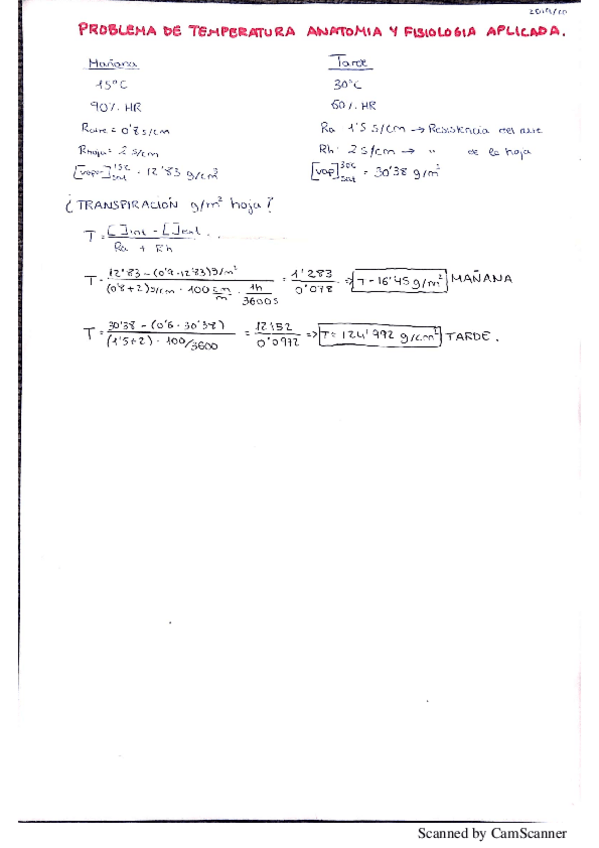 2019/20
PROBLEMA DE TEMPERATURA ANATOMIA Y FISIOLOGIA APLICADA.
Mañana
15°C
90% HR
Raire = 0'8 s/cm
Rhoja = 2 s/cm
[vapor]sat 15°C = 12'83 g/cm²
Tarde
30°C
60% HR
Ra 1'5 s/cm → Resistencia del aire
Rh: 2 s/cm → " de la hoja
[vap]sat 30°C = 30'38 g/m²
¿TRANSPIRACIÓN g/m² hoja?
T = [ ]int - [ ]ext / Ra + Rh
T = 12'83 - (0'9 · 12'83) g/m² / (0'8 + 2) s/cm · 100 cm/m · 1h/3600s = 1'283 / 0'078 => T = 16'45 g/m² MAÑANA
T = 30'38 - (0'6 · 30'38) / (1'5+2) · 100/3600 = 12'152 / 0'0972 => T = 124'992 g/cm² TARDE.
Scanned by CamScanner